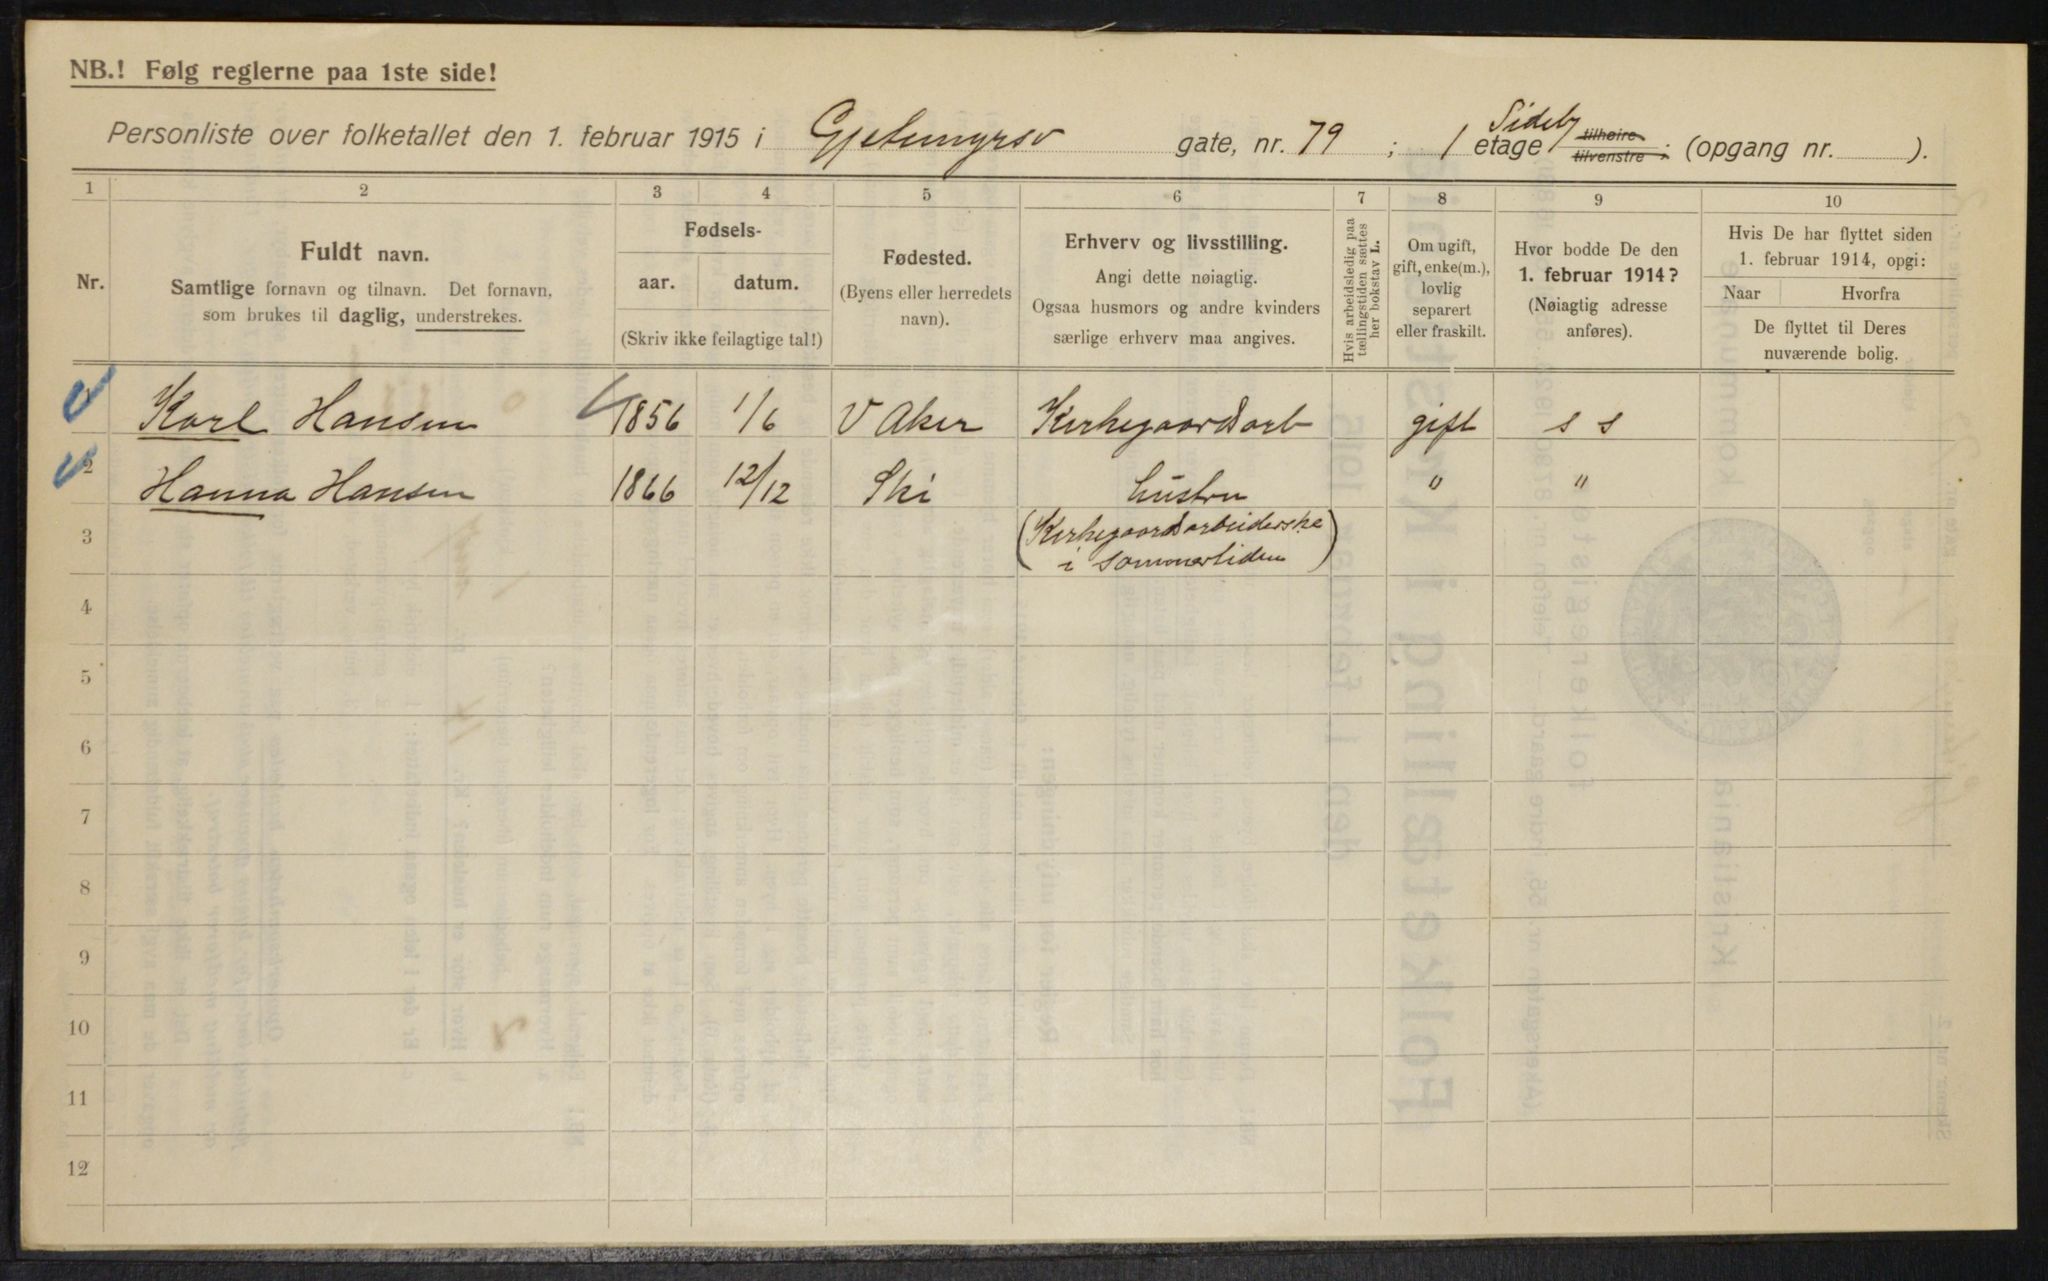 NB.! Følg reglerne paa 1ste side!
Personliste over folketallet den 1. februar 1915 i Gjetemyrsv gate, nr. 79 ; 1 etage Sideby tilhøire tilvenstre ; (opgang nr. ).
1 2 3 4 5 6 7 8 9 10
Nr.
Fuldt navn.
Samtlige fornavn og tilnavn. Det fornavn,
som brukes til daglig, understrekes.
Fødsels-
aar. datum.
(Skriv ikke feilagtige tal!)
Fødested.
(Byens eller herredets
navn).
Erhverv og livsstilling.
Angi dette nøiagtig.
Ogsaa husmors og andre kvinders
særlige erhverv maa angives.
Hvis arbeidsledig paa
tællingstiden sættes
her bokstav L.
Om ugift,
gift, enke(m.),
lovlig
separert
eller fraskilt.
Hvor bodde De den
1. februar 1914?
(Nøiagtig adresse
anføres).
Hvis De har flyttet siden
1. februar 1914, opgi:
Naar Hvorfra
De flyttet til Deres
nuværende bolig.
Karl Hansen 1856 1/6 V Aker Kirkegaardsarb gift s s
2 Hanna Hansen 1866 12/12 Ski hustru " "
3 (Kirkegaardsarbeiderske
i sommertiden)
4
5
6
7
8
9
10
11
12